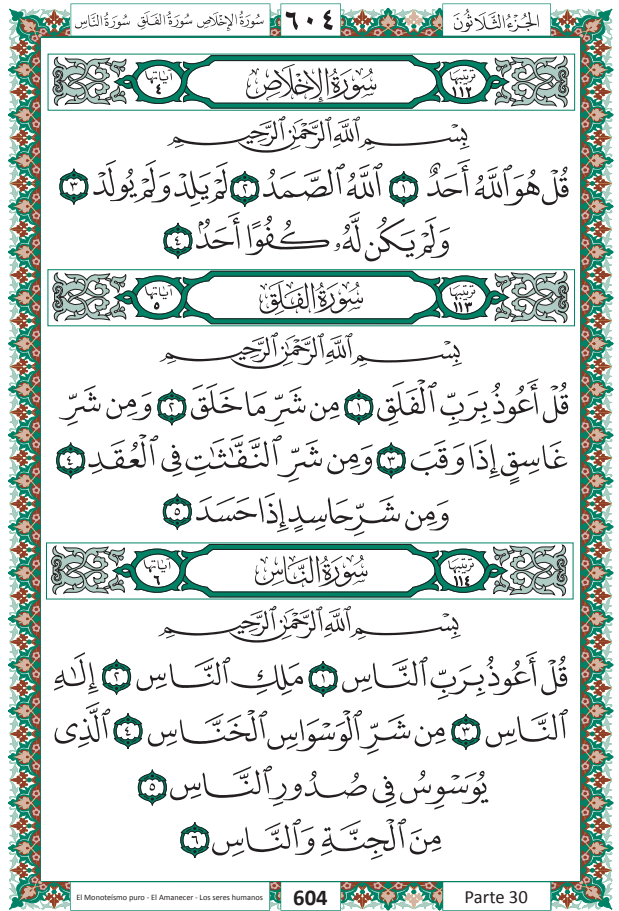 سُورَةُ الإِخْلَاصِ سُورَةُ الفَلَقِ سُورَةُ النَّاسِ
٦٠٤
الجُزْءُ الثَّلَاثُونَ
ترتيبها ١١٢ سُورَةُ الإِخْلَاصِ آياتها ٤
بِسْمِ ٱللَّهِ ٱلرَّحْمَٰنِ ٱلرَّحِيمِ
قُلْ هُوَ ٱللَّهُ أَحَدٌ ١ ٱللَّهُ ٱلصَّمَدُ ٢ لَمْ يَلِدْ وَلَمْ يُولَدْ ٣
وَلَمْ يَكُن لَّهُۥ كُفُوًا أَحَدٌۢ ٤
ترتيبها ١١٣ سُورَةُ الفَلَقِ آياتها ٥
بِسْمِ ٱللَّهِ ٱلرَّحْمَٰنِ ٱلرَّحِيمِ
قُلْ أَعُوذُ بِرَبِّ ٱلْفَلَقِ ١ مِن شَرِّ مَا خَلَقَ ٢ وَمِن شَرِّ
غَاسِقٍ إِذَا وَقَبَ ٣ وَمِن شَرِّ ٱلنَّفَّٰثَٰتِ فِى ٱلْعُقَدِ ٤
وَمِن شَرِّ حَاسِدٍ إِذَا حَسَدَ ٥
ترتيبها ١١٤ سُورَةُ النَّاسِ آياتها ٦
بِسْمِ ٱللَّهِ ٱلرَّحْمَٰنِ ٱلرَّحِيمِ
قُلْ أَعُوذُ بِرَبِّ ٱلنَّاسِ ١ مَلِكِ ٱلنَّاسِ ٢ إِلَٰهِ
ٱلنَّاسِ ٣ مِن شَرِّ ٱلْوَسْوَاسِ ٱلْخَنَّاسِ ٤ ٱلَّذِى
يُوَسْوِسُ فِى صُدُورِ ٱلنَّاسِ ٥
مِنَ ٱلْجِنَّةِ وَٱلنَّاسِ ٦
El Monoteísmo puro - El Amanecer - Los seres humanos
604
Parte 30